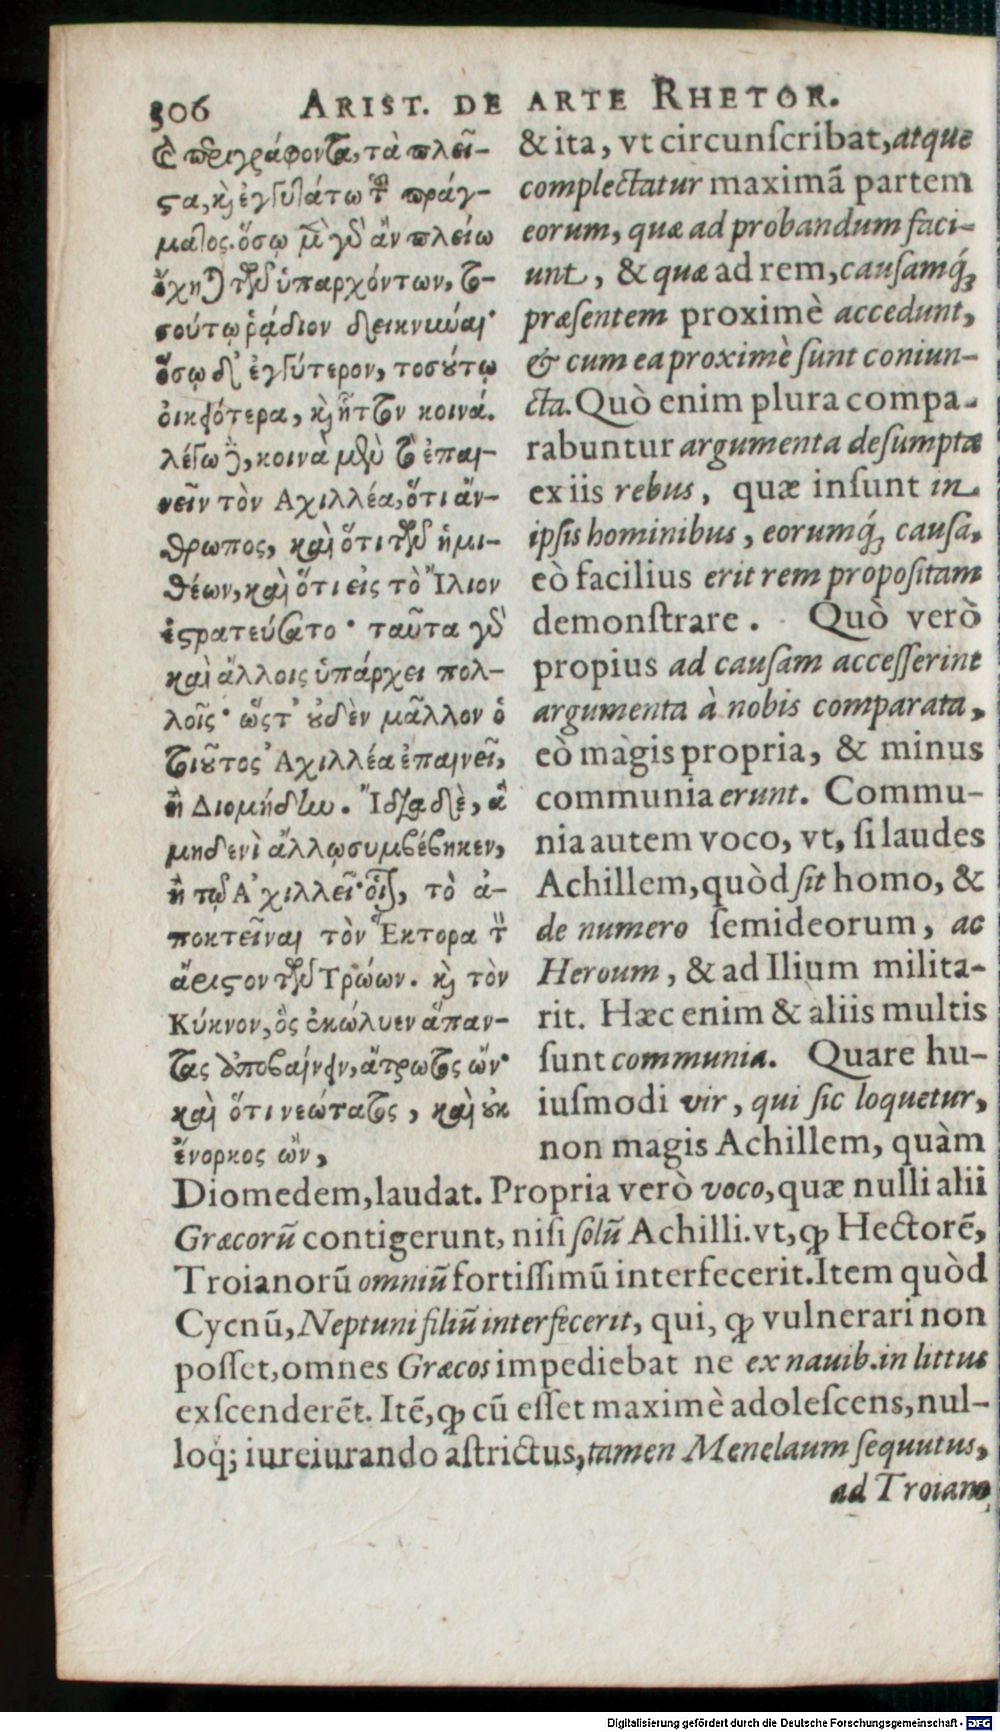 306 ARIST. DE ARTE RHETOR.
καὶ περιγράφοντα, τὰ πλεῖ-
ϛα, καὶ ἐγγυτάτω τοῦ πράγ-
ματος. ὅσῳ μὲν γὰρ ἂν πλείω
ἔχηται τῶν ὑπαρχόντων, το-
σούτῳ ῥάδιον δεικνύναι·
ὅσῳ δ' ἐγγύτερον, τοσούτῳ
οἰκειότερα, καὶ ἧττον κοινά.
λέγω δὲ, κοινὰ μὲν τὸ ἐπαι-
νεῖν τὸν Αχιλλέα, ὅτι ἄν-
θρωπος, καὶ ὅτι τῶν ἡμι-
θέων, καὶ ὅτι εἰς τὸ Ἴλιον
ἐϛρατεύσατο· ταῦτα γὰρ
καὶ ἄλλοις ὑπάρχει πολ-
λοῖς· ὥςτ' οὐδὲν μᾶλλον ὁ
τοιοῦτος Ἀχιλλέα ἐπαινεῖ,
ἢ Διομήδην. Ἴδια δὲ, ἃ
μηδενὶ ἄλλῳ συμβέβηκεν,
ἢ τῷ Ἀχιλλεῖ· οἷον, τὸ ἀ-
ποκτεῖναι τὸν Ἕκτορα τὸν
ἄριϛον τῶν Τρώων. καὶ τὸν
Κύκνον, ὃς ἐκώλυεν ἅπαν-
τας ἀποβαίνειν, ἄτρωτος ὤν·
καὶ ὅτι νεώτατος, καὶ οὐκ
ἔνορκος ὢν,
& ita, vt circunſcribat, atque
complectatur maximã partem
eorum, quæ ad probandum faci-
unt, & quæ ad rem, cauſamq́;
præſentem proximè accedunt,
& cum ea proximè ſunt coniun-
cta. Quò enim plura compa-
rabuntur argumenta deſumpta
ex iis rebus, quæ inſunt in
ipſis hominibus, eorumq́; cauſa,
eò facilius erit rem propoſitam
demonſtrare. Quò verò
propius ad cauſam acceſſerint
argumenta à nobis comparata,
eò magis propria, & minus
communia erunt. Commu-
nia autem voco, vt, ſi laudes
Achillem, quòd ſit homo, &
de numero ſemideorum, ac
Heroum, & ad Ilium milita-
rit. Hæc enim & aliis multis
ſunt communia. Quare hu-
iuſmodi vir, qui ſic loquetur,
non magis Achillem, quàm
Diomedem, laudat. Propria verò voco, quæ nulli alii
Græcorũ contigerunt, niſi ſolũ Achilli. vt, ꝙ Hectorẽ,
Troianorũ omniũ fortiſſimũ interfecerit. Item quòd
Cycnũ, Neptuni filiũ interfecerit, qui, ꝙ vulnerari non
poſſet, omnes Græcos impediebat ne ex nauib. in littus
exſcenderẽt. Itẽ, ꝙ cũ eſſet maximè adoleſcens, nul-
loq; iureiurando aſtrictus, tamen Menelaum ſequutus,
ad Troiano
Digitalisierung gefördert durch die Deutsche Forschungsgemeinschaft - DFG